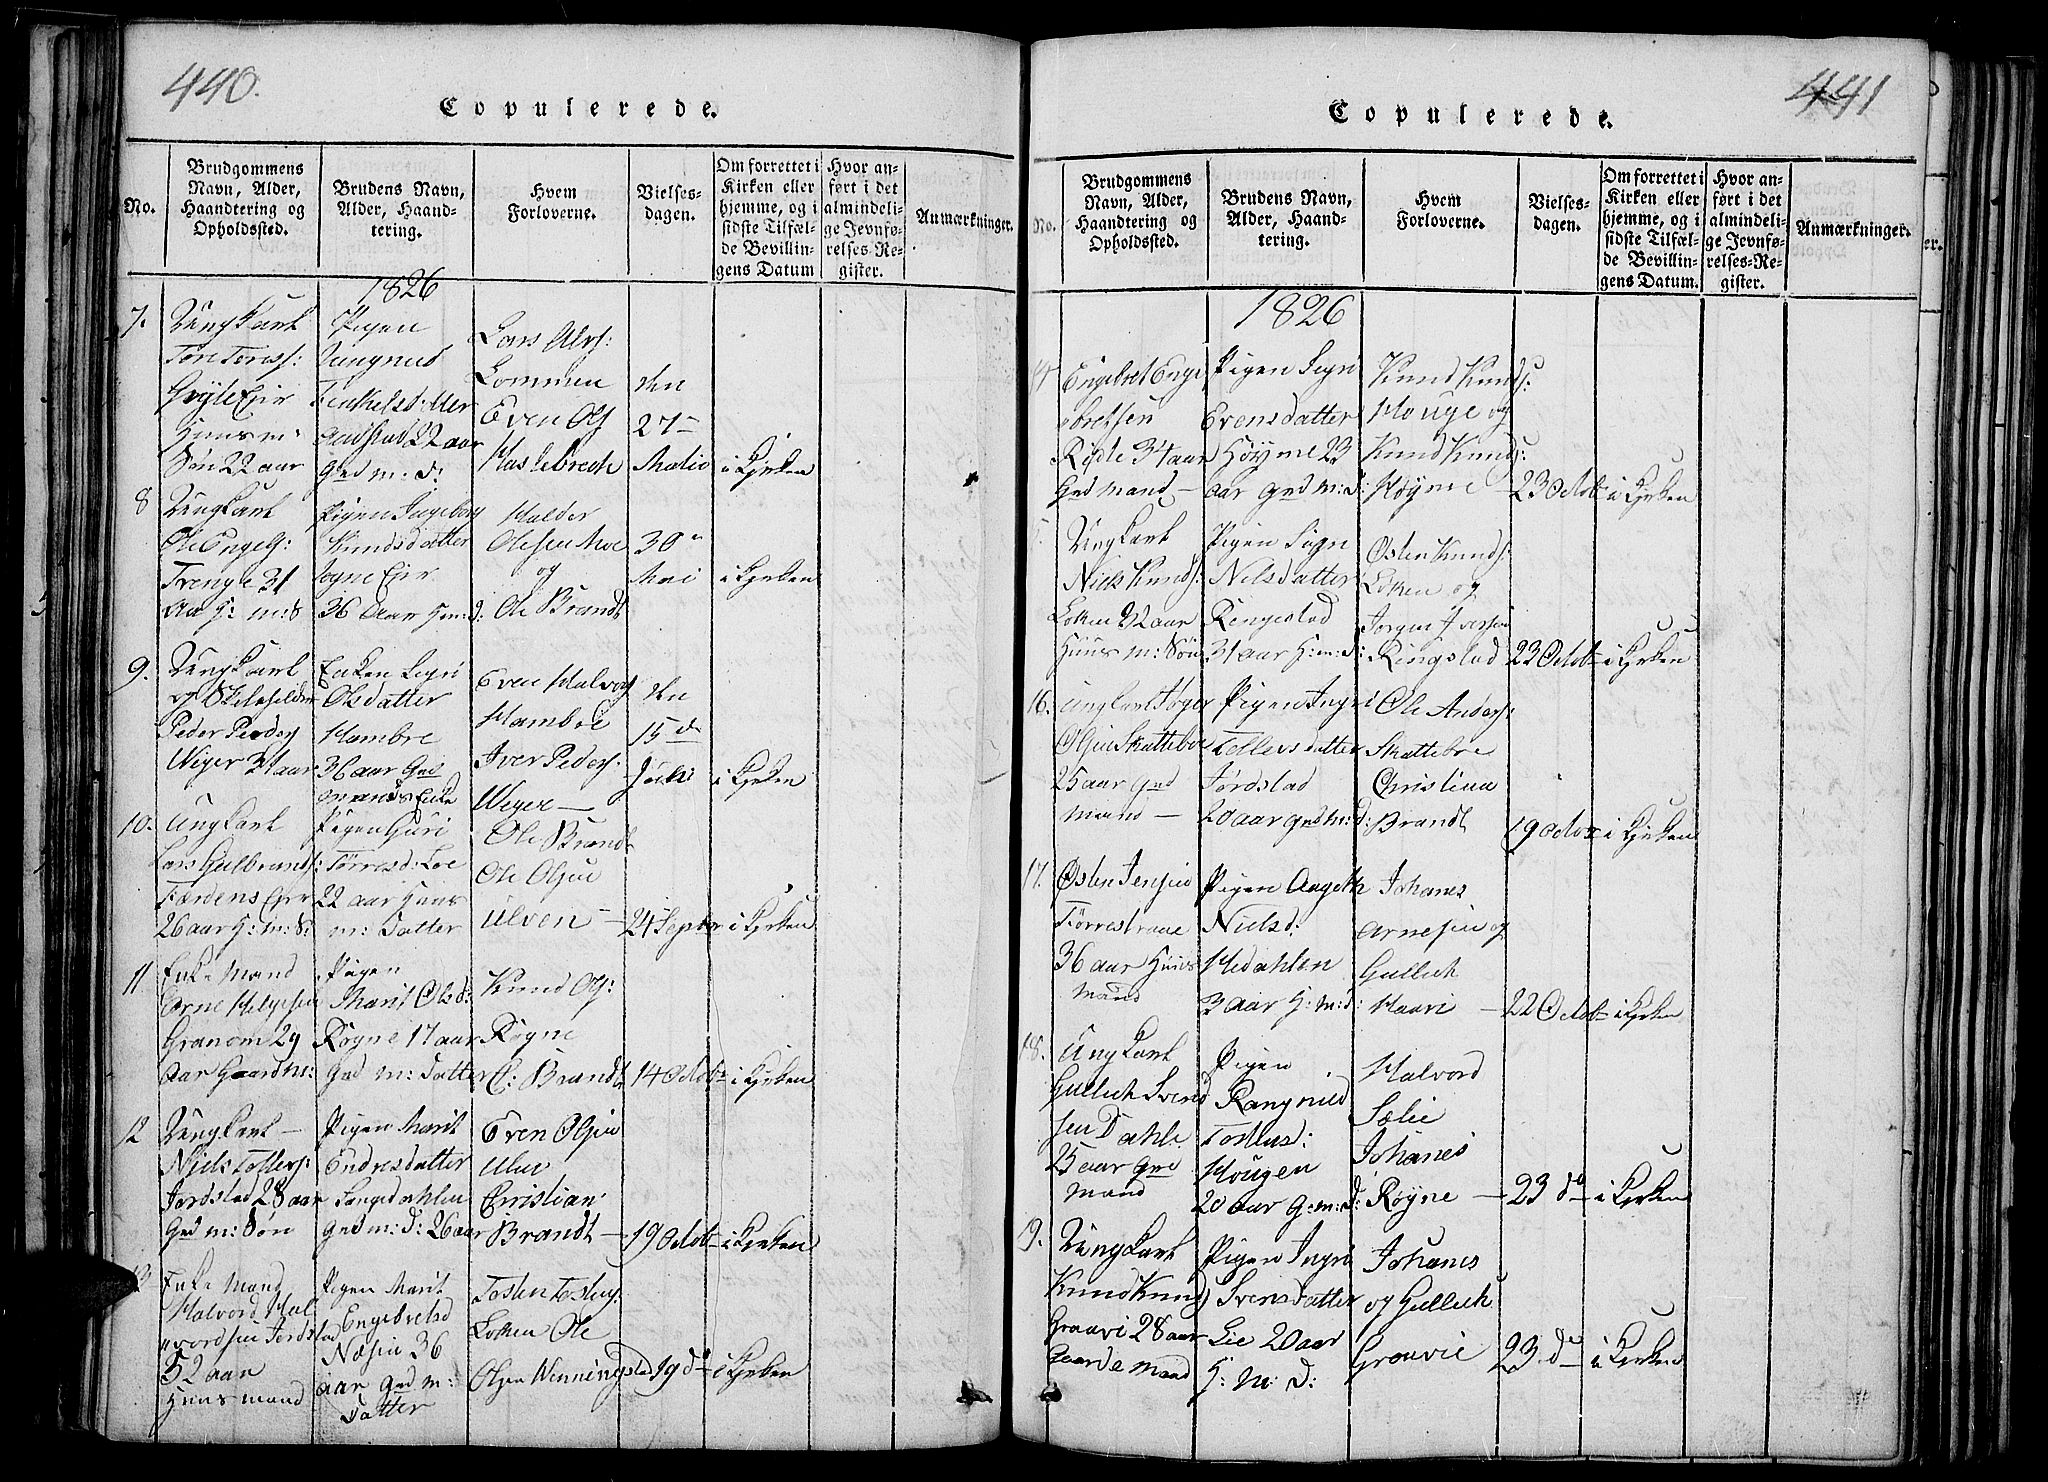 440.
Copulerede.
No.
Brudgommens Navn, Alder, Haandtering og Opholdssted.
Brudens Navn, Alder, Haandtering.
Hvem Forloverne.
Vielsesdagen.
Om forrettet i Kirken eller hjemme, og i sidste Tilfælde Bevillingens Datum
Hvor anført i det almindelige Jevnførelses-Register.
Anmærkninger.
1826
7.
Ungkarl
Tore Toress:
Eier
Huusm:
Søn 22 aar
Pigen
Tenkelsdatter
22 aar
Grd m: d:
Lars
Lommen
Even Ols
Haslebrech
den
27
Maii
i Kjrken
8
Ungkarl
Ole Engels:
Trenge 31
Aa H: m: S
Pigen Ingebor
Knudsdatter
Eier
36 Aar H m: d:
Halder
Olesen Moe
og
Ole Brandt
30
Mai
i Kjrken
9.
Ungkarl
og Skolehelder
Peder Peders
Weger 31 aar
Enken Segri
Olsdatter
Hambre
36 aar Grd
mands Enke
Even Halvors
Hambre
Iver Peders:
Weger —
den
15 de
i Kjrken
10.
Ungkarl
Lars Gulbrands:
Færdens Eier
26 aar H: m: S:
Pigen Guri
Torresd: Loe
22 aar Huus
m: Datter
Ole Brandt
Ole Olsen
Ulven —
24 Septbr
i Kjrken
11
Enke Mand
Arne Helgesen
Granom 29
Aar Gaardm:
Pigen
Marit Olsd:
Røgne 17 aar
Grd m: Datter
Knud Ols:
Røgne
C: Brandt
14 Octobr
i Kjrken
12
Ungkarl —
Niels Tollers:
Jordstad 28 aar
Grd m: Søn
Pigen Marit
Endresdatter
Grd m: d: 26 aar
Even Olsen
Christian
Brandt —
19 Octob
i Kjrken
13
Enke Mand
Halvord Hal
vordsen Jordstad
52 aar
Huusmand
Pigen Marit
Engebretsd
36
aar Grd m:
Datter
Tosten Tostens:
Loken Ole
Olsen Wenningstad
19 d
i Kjrken
441
Copulerede.
No.
Brudgommens Navn, Alder, Haandtering og Opholdssted.
Brudens Navn, Alder, Haandtering.
Hvem Forloverne.
Vielsesdagen.
Om forrettet i Kirken eller hjemme, og i sidste Tilfælde Bevillingens Datum.
Hvor anført i det almindelige Jevnførelses-Register.
Anmærkninger.
1826
14
Engebret Enge
bretsen
34 aar
Grd Mand —
Pigen Segri
Evensdatter
Høyme 23
aar Grd m: d:
Knud Knuds:
Houge og
Knud Knuds:
Høyme —
23 Octob
i Kjrken
Ungkarl
Niels Knuds:
Loken 32 aar
Huus m: Søn
Pigen
Nelsdatter
Rengestad
31 aar H: m: d:
Østen Knuds:
Loken og
Jorgen Iversen
Ringstad
23 Octob
i Kjrken
16.
Ungkarl
Olsen Skattebo
25 aar Grd
Mand —
Pigen Ingri
Tollersdatter
Jordstad
20 aar Grd m: d:
Ole Anders:
Skattebo
Christian
Brandt
19 Octob
i Kjrken
17.
Østen Jensen
36 aar Huus
Mand
Pigen Angeth
Nielsd:
Hedahlen
3 aar H: m: d:
Johanes
Arnesen og
Gullich
Haavi
22 Octob
i Kjrken
18.
Ungkarl
Gullich Svend
sen Dahle
25 aar Grd
Mand
Pigen
Rangnild
Tostens:
Hougen
20 aar G: m: d:
Halvord
Sælie
Johanes
Røyne —
23 d
i Kjrken
19.
Ungkarl
Knud Knuds
Graavi 28 aar
Gaardemand
Pigen Ingri
Svensdatter
Lie 20 aar
H: M: D:
Johanes
og Gullich
Graavie
23 d
i Kjrken